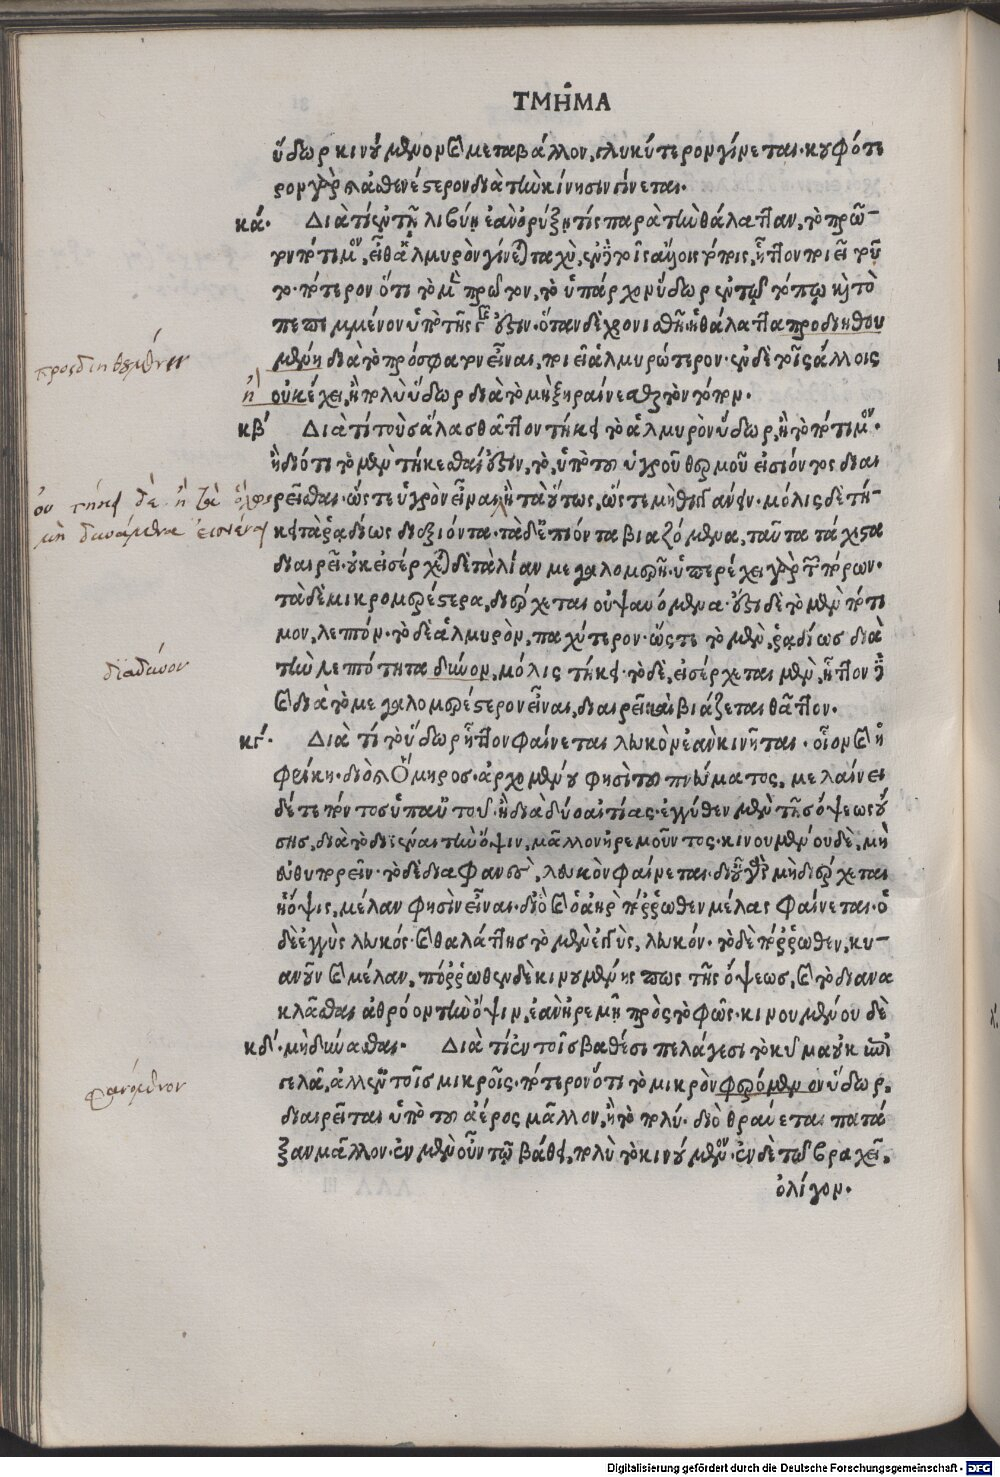 ΤΜΗ͂ΜΑ
ὕδωρ κινούμενον καὶ μεταβάλλον, γλυκύτερον γίνεται. κουφότε
ρον γὰρ καὶ ἀσθενέστερον διὰ τὴν κίνησιν γίνεται.
κά. Διὰ τί ἐν τῇ λιβύῃ ἐὰν ὀρύξῃ τίς παρὰ τὴν θάλατταν, τὸ πρῶ-
τον πότιμον, εἶθ' ἁλμυρὸν γίνεται ταχὺ, ἐν δὲ τοῖς ἄλλοις τόποις, ἧττον ποιεῖ τοῦ
το. πότερον ὅτι τὸ μὲν πρῶτον, τὸ ὑπάρχον ὕδωρ ἐν τῷ τόπῳ καὶ τὸ
πεπεμμένον ὑπὸ τῆς γῆς ἐστιν. ὅταν δὲ χρονισθῇ, ἡ θάλαττα προδιηθου
μένη διὰ τὸ πρόσφατον εἶναι, ποιεῖ ἁλμυρώτερον. ἐν δὲ τοῖς ἄλλοις
ἢ οὐκ ἔχει, ἢ πολὺ ὕδωρ διὰ τὸ μὴ ξηραίνεσθαι τὸν τόπον.
κβ' Διὰ τί τοὺς ἅλας θᾶττον τήκει τὸ ἁλμυρὸν ὕδωρ, ἢ τὸ πότιμον.
ἢ διότι τὸ μὲν τήκεσθαί ἐστιν, τὸ, ὑπὸ τοῦ ὑγροῦ θερμοῦ εἰσιόντος διαι
ρεῖσθαι. ὥστε ὑγρὸν εἶναι, ἢ ταὔτως, ὥστε μὴ θιγγάνειν. μόλις δὲ τή-
κει τὰ ῥαδίως διεξιόντα. τὰ δὲ ἐπιόντα βιαζόμενα, ταῦτα τάχιστα
διαιρεῖ. οὐκ εἰσέρχεται δὲ τὰ λίαν μεγαλομερῆ. ὑπερέχει γὰρ τῶν πόρων.
τὰ δὲ μικρομερέστερα, διέρχεται οὐ ψαυόμενα. ἐστὶ δὲ τὸ μὲν πότι
μον, λεπτόν. τὸ δὲ ἁλμυρὸν, παχύτερον. ὥστε τὸ μὲν, ῥαδίως διὰ
τὴν λεπτότητα δύνον, μόλις τήκει. τὸ δὲ, εἰσέρχεται μὲν, ἧττον δὲ
καὶ διὰ τὸ μεγαλομερέστερον εἶναι, διαιρεῖ καὶ βιάζεται θᾶττον.
κγ'. Διὰ τί τὸ ὕδωρ ἧττον φαίνεται λευκὸν ἐὰν κινῆται. οἷον καὶ ἡ
φρίκη. διὸ καὶ Ὅμηρος. ἀρχομένου φησὶ τοῦ πνεύματος, μελαίνει
δέ τε πόντος ὑπ' αὐτοῦ. ἢ διὰ δύο αἰτίας. ἐγγύθεν μὲν τῆς ὄψεως οὔ
σης, διὰ τὸ διϊέναι τὴν ὄψιν, μᾶλλον ἠρεμοῦντος. κινουμένου δὲ, μὴ
εὐθυπορεῖν. τὸ δὲ διαφανὲς, λευκὸν φαίνεται. δι' οὗ γὰρ μὴ διέρχεται
ἡ ὄψις, μέλαν φησὶν εἶναι. διὸ καὶ ὁ ἀὴρ πόῤῥωθεν μέλας φαίνεται. ὁ
δὲ ἐγγὺς λευκός. καὶ θαλάττης τὸ μὲν ἐγγὺς, λευκόν. τὸ δὲ πόῤῥωθεν, κυ-
ανοῦν καὶ μέλαν. πόῤῥωθεν δὲ κινουμένης πως τῆς ὄψεως, καὶ τὸ διανα
κλᾶσθαι ἀθρόον τὴν ὄψιν, ἐὰν ἠρεμῇ πρὸς τὸ φῶς. κινουμένου δὲ
κδ'. μὴ δύνασθαι. Διὰ τί ἐν τοῖς βαθέσι πελάγεσι τὸ κῦμα οὐκ ἐπι
γελᾶ, ἀλλ' ἐν τοῖς μικροῖς. πότερον ὅτι τὸ μικρὸν φερόμενον ὕδωρ,
διαιρεῖται ὑπὸ τοῦ ἀέρος μᾶλλον, ἢ τὸ πολύ. διὸ θραύεται πατά
ξαν μᾶλλον. ἐν μὲν οὖν τῷ βάθει, πολὺ τὸ κινούμενον. ἐν δὲ τῷ βραχεῖ,
ὀλίγον.
προςδιηθουμένη
οὐ τήκει δὲ ἢ
μὴ δυνάμενα εἰσιέναι
διαδύνον
φαινόμενον
Digitalisierung gefördert durch die Deutsche Forschungsgemeinschaft - DFG